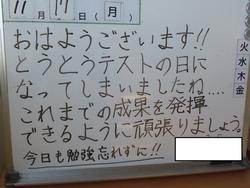 11月17日(月)
おはようございます!!
とうとうテストの日に
なってしまいましたね....
これまでの成果を発揮
できるように頑張りましょう。
今日も勉強忘れずに!!
火
水
木
金